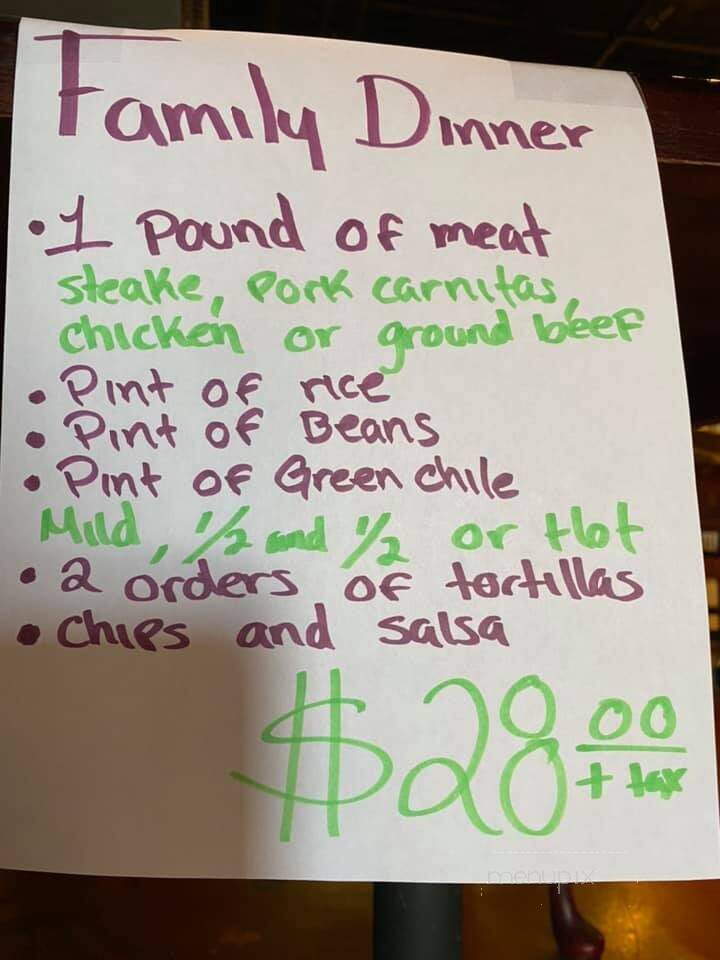 Family Dinner
• 1 Pound of meat
steake, Pork carnitas,
chicken or ground beef
• Pint of rice
• Pint of Beans
• Pint of Green chile
Mild, 1/2 and 1/2 or Hot
• 2 orders of tortillas
• Chips and salsa
$28 00
+ tax
menupix